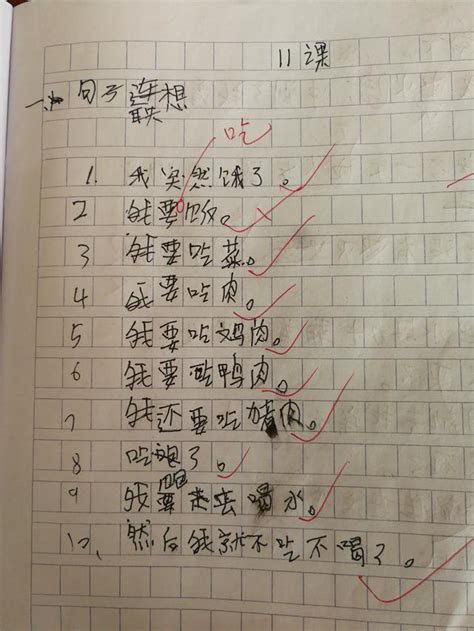 11课
一、句子联想
吃
1. 我突然饿了。
2 我要饭。
3 我要吃菜。
4 我要吃肉。
5 我要吃鸡肉。
6 我要吃鸭肉。
7 我还要吃猪肉。
8 吃饱了。
9 我要去喝水。
10、然后我就不吃不喝了。